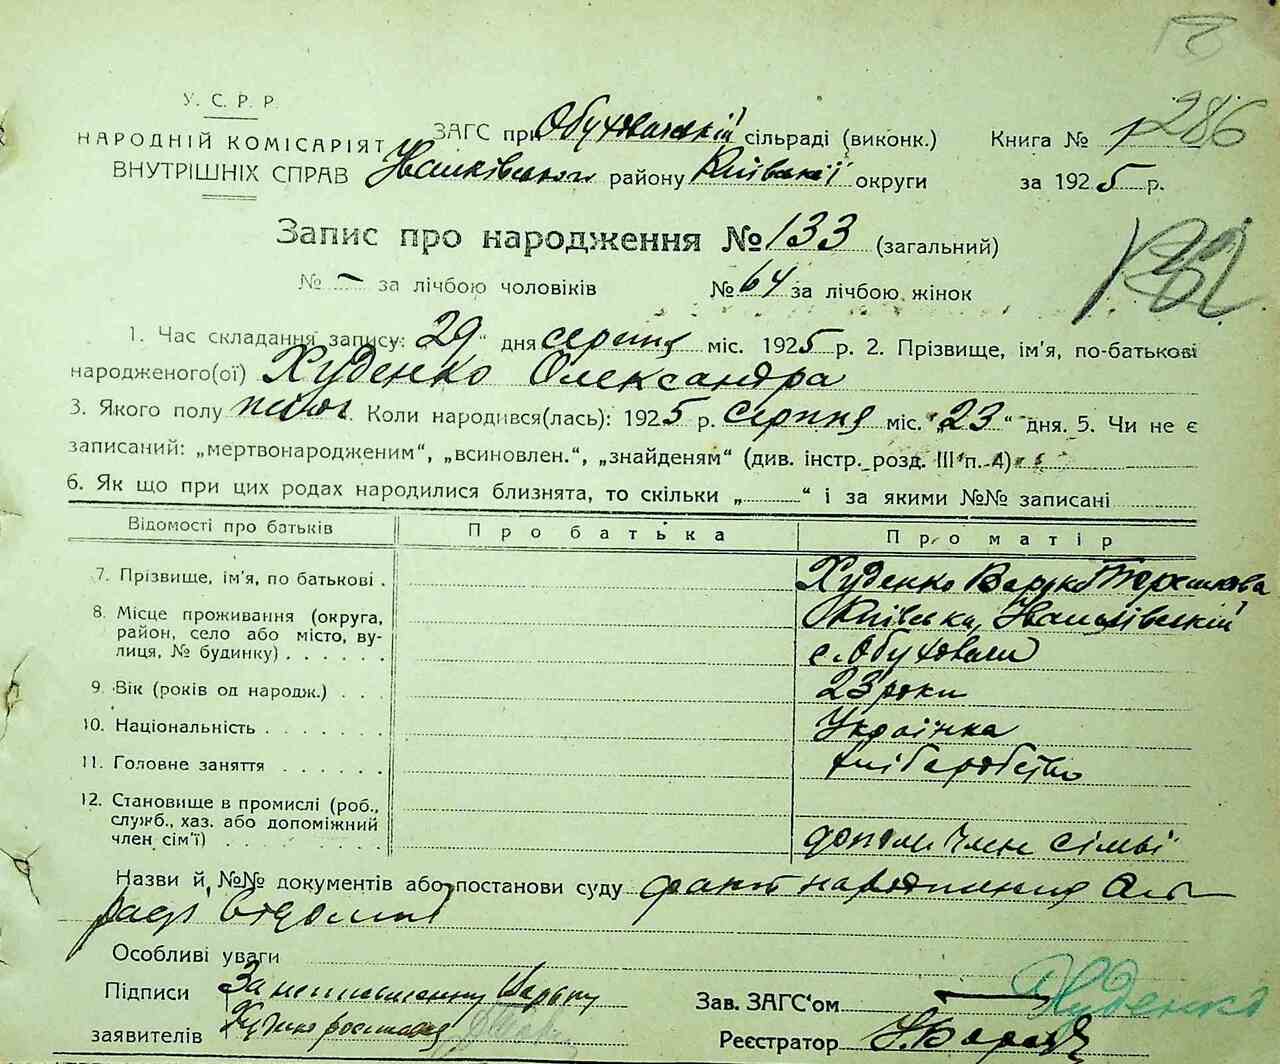 У. С. Р. Р.
НАРОДНІЙ КОМІСАРІЯТ
ВНУТРІШНІХ СПРАВ
286
ЗАГС при Обуховській сільраді (виконк.) Книга № 1
району Київської округи за 1925 р.
Запис про народження № 133 (загальний)
№ – за лічбою чоловіків № 64 за лічбою жінок
1. Час складання запису: „29“ дня серпня міс. 1925 р. 2. Прізвище, ім'я, по-батькові
народженого(ої) Худенко Олександра
3. Якого полу жіноч. Коли народився(лась): 1925 р. серпня міс. „23“ дня. 5. Чи не є
записаний: „мертвонародженим“, „всиновлен.“, „знайденям“ (див. інстр. розд. III п. 4)
6. Як що при цих родах народилися близнята, то скільки „ “ і за якими №№ записані
Відомості про батьків Про батька Про матір
7. Прізвище, ім'я, по батькові . Худенко
8. Місце проживання (округа, Київська,
район, село або місто, ву-
лиця, № будинку) . . . . . с.
9. Вік (років од народж.) . . . 23 роки
10. Національність . . . . . . . Українка
11. Головне заняття . . . . . . хліборобство
12. Становище в промислі (роб.,
служб., хаз. або допоміжний
член сім'ї) . . . . . . . . . допом. член сімьї
Назви й №№ документів або постанови суду факт народження
раді відомий
Особливі уваги
Підписи За неписьменну
заявителів
Зав. ЗАГС‘ом Худенко
Реєстратор